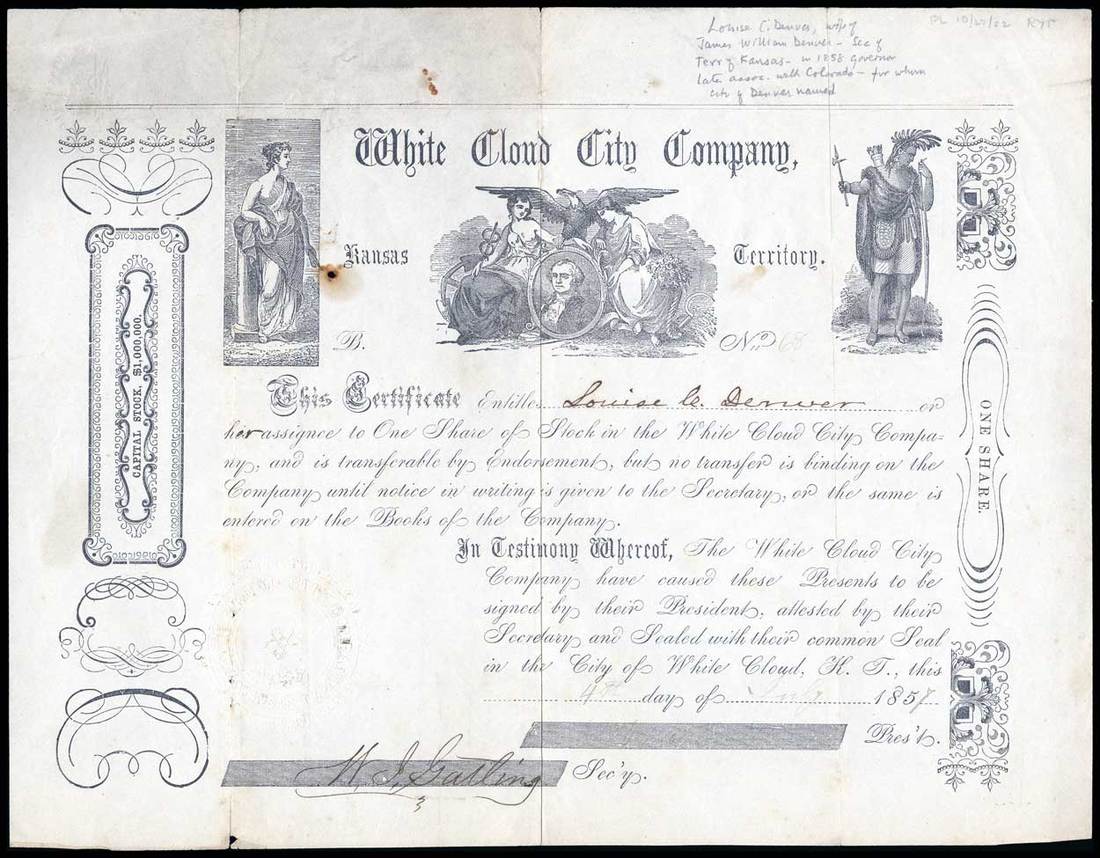 Louise C. Denver, wife of
James William Denver - Sec of
Terr of Kansas - in 1858 governor
later assoc. with Colorado - for whom
city of Denver named
White Cloud City Company,
Kansas Territory.
CAPITAL STOCK, $1,000,000,
B. No 68
This Certificate Entitles Louise C. Denver or
her assignee to One Share of Stock in the White Cloud City Compa-
ny, and is transferable by Endorsement, but no transfer is binding on the
Company until notice in writing is given to the Secretary, or the same is
entered on the Books of the Company.
ONE SHARE.
In Testimony Whereof, The White Cloud City
Company have caused these Presents to be
signed by their President, attested by their
Secretary and Sealed with their common Seal
in the City of White Cloud, K. T., this
4th day of 1857
Pres't.
W. J. Gatling Sec'y.